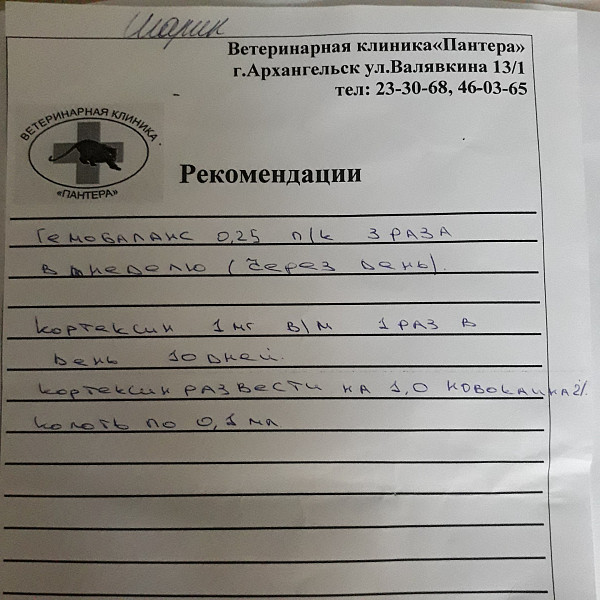 Шарик
Ветеринарная клиника«Пантера»
г.Архангельск ул.Валявкина 13/1
тел: 23-30-68, 46-03-65
ВЕТЕРИНАРНАЯ КЛИНИКА
«ПАНТЕРА»
Рекомендации
Гемобаланс 0,25 п/к 3 раза
в неделю (через день).
Кортексин 1 мг в/м 1 раз в
день 10 дней.
Кортексин развести на 1,0 новокаина 2%
колоть по 0,1 мл